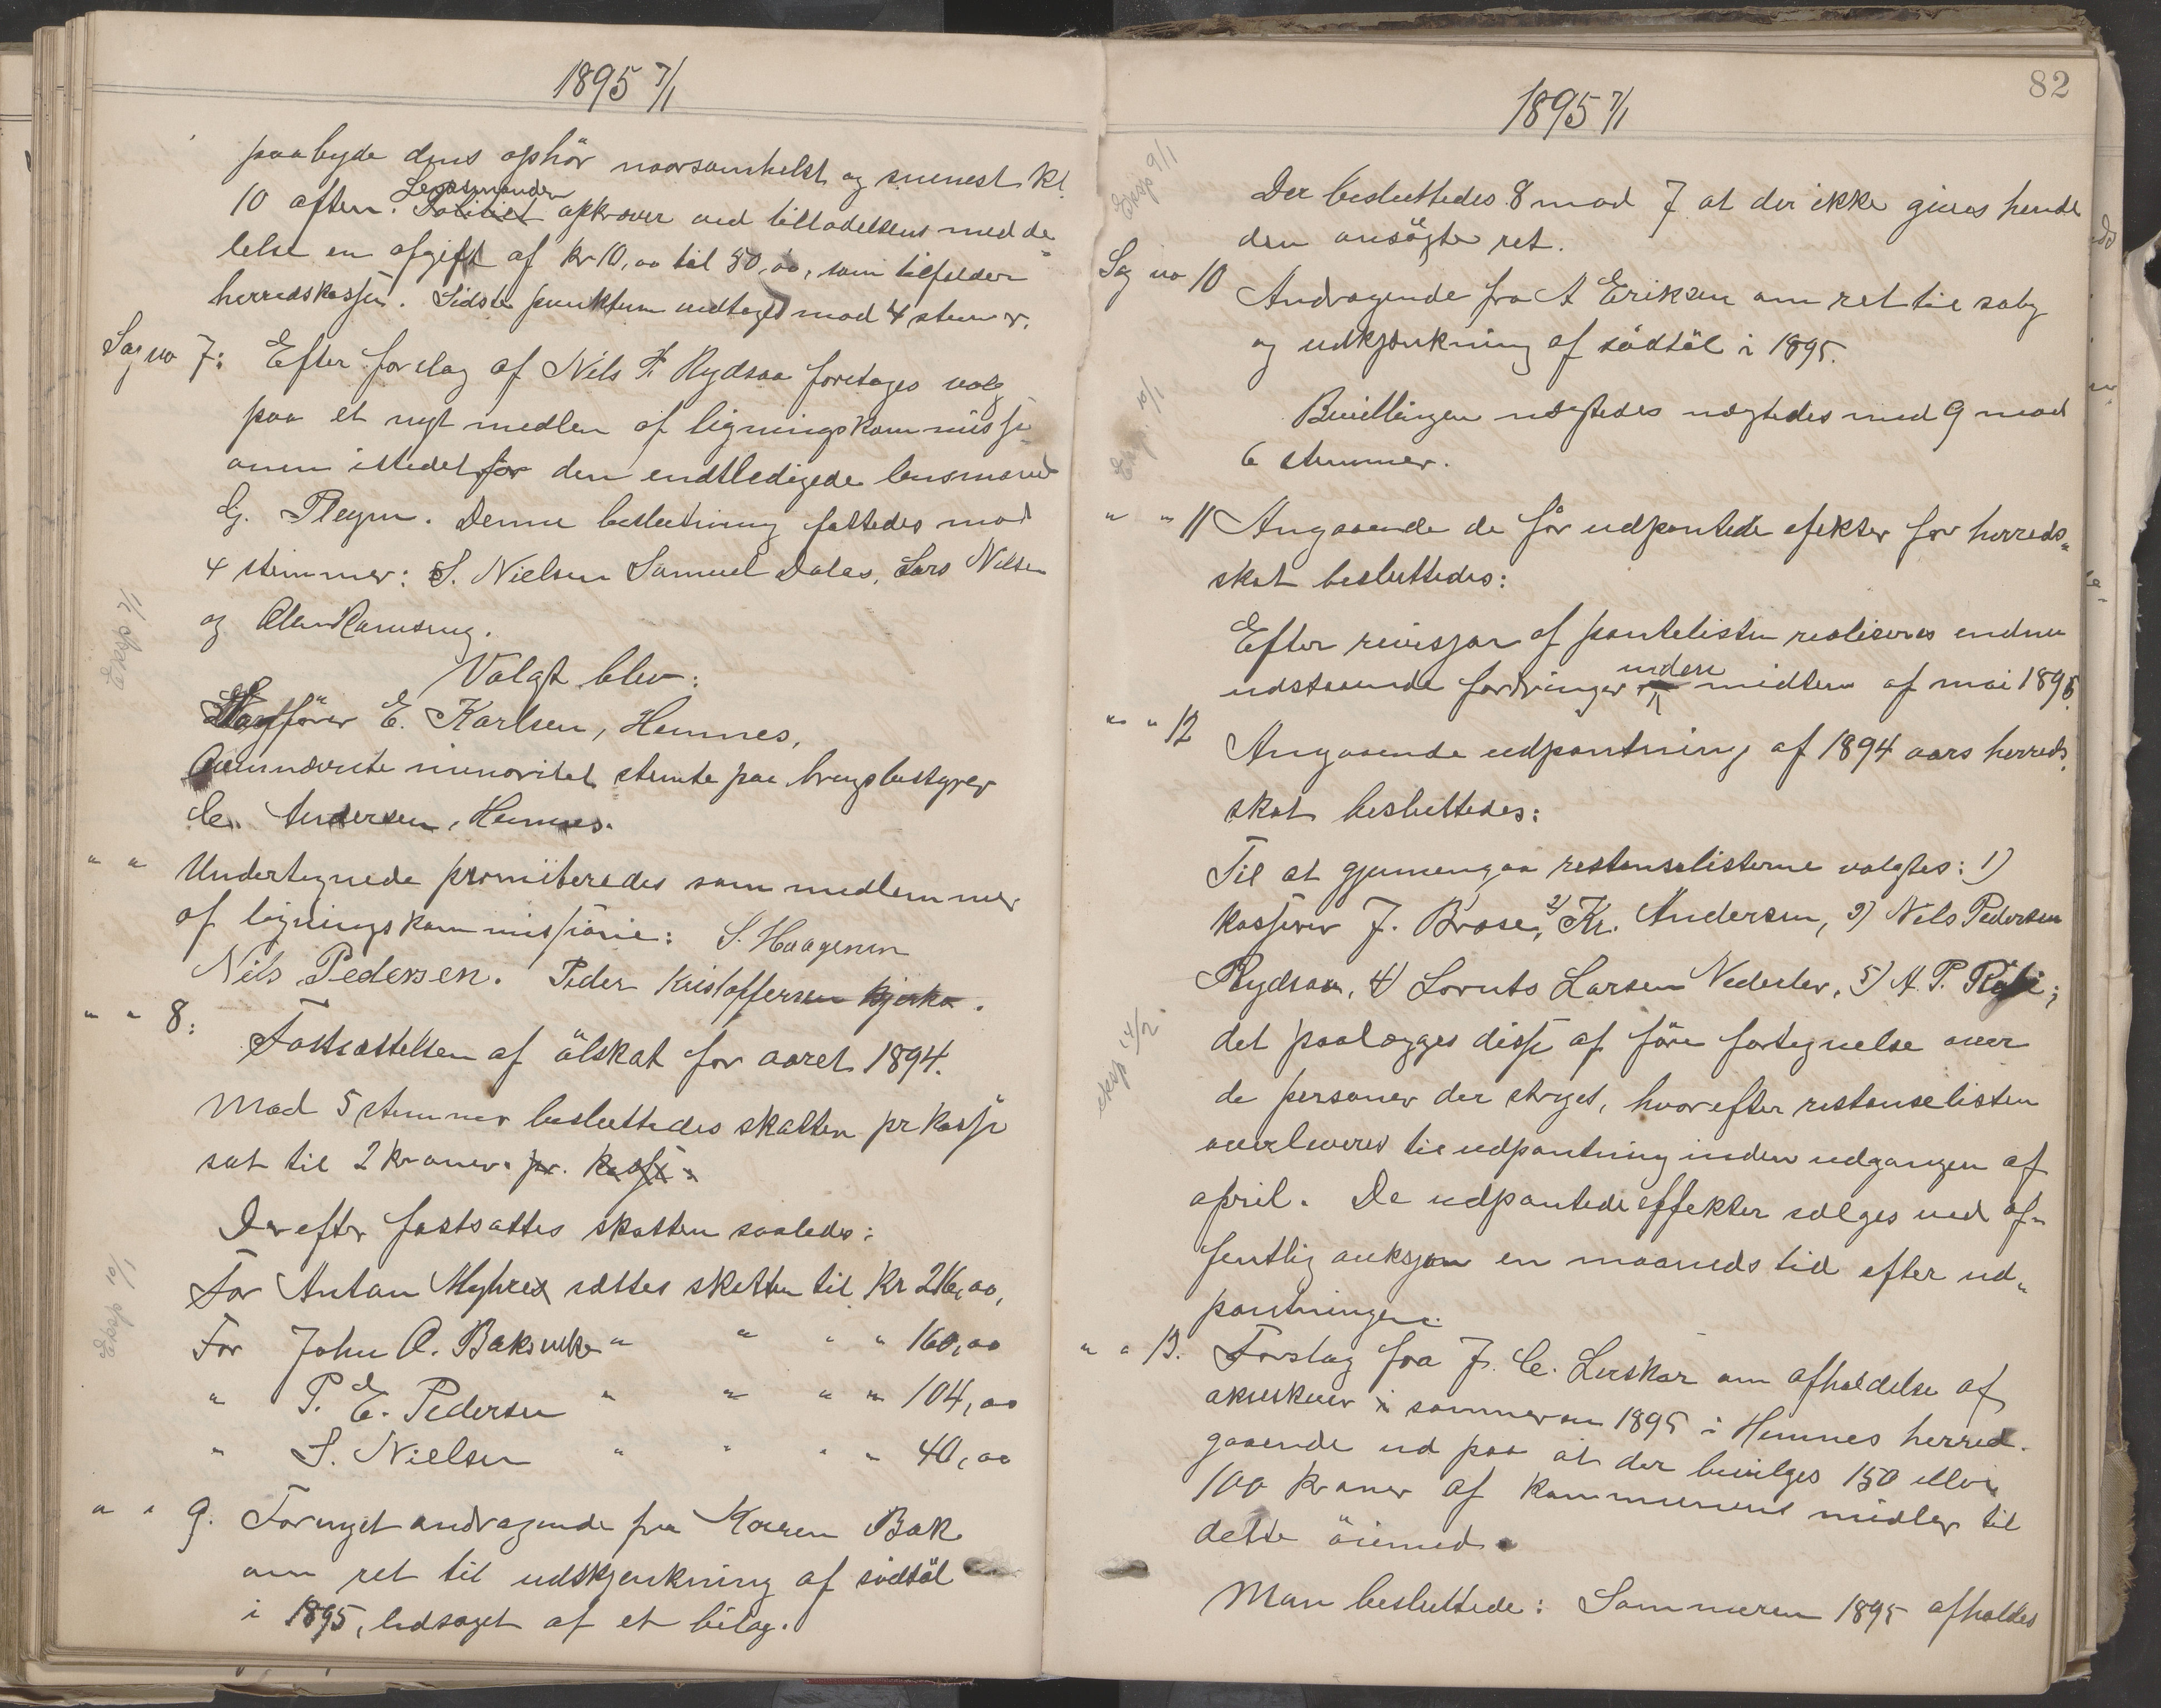 1895 7/1
paabyde dens ophör naarsomhelst og senest kl
10 aften. Politiet Lensmanden opkræver ved tilladelsens medde-
lelse en afgift af kr 10,00 til 50,00, som tilfalder
herredskassen. Sidste punktum vedtages mod 4 stemmer.
Sag no 7: Efter forslag af Nils P. Rydsaa foretages valg
paa et nyt medlem af ligningskommissi-
onen istedetfor den endtledigede lensmand
G. Pleym. Denne beslutning fattedes mod
4 stemmer: S. Nielsen Samuel Dalas, Lars Nilsen
og Olen Ranesnug.
Eksp 9/1
Valgt blev:
E. Karlsen, Hemnes,
Ovennævnte minoritet stemte paa brugsbestyrer
C. Andersen, Hemnes.
" " Undertegnede promitteredes som medlemmer
af ligningskommissionen: S. Haagensen
Nils Pedersen. Peder Kristoffersen Bjerka.
" " 8: Fastsættelsen af ölskat for aaret 1894.
Mod 5 stemmer besluttedes skatten pr kasse
sat til 2 kroner. pr. kasse.
Derefter fastsattes skatten saaledes:
Eksp 10/1
For Anton Myhre sættes skatten til kr 216,00,
For John O. Baksvek " " " " 160,00
" P. E. Pedersen " " " " 104,00
" S. Nielsen " " " " 40,00
" " 9. Fornyet andragende fra Karen Bak
om ret til udskjenkning af södtöl
i 1895, ledsaget af et bilag.
82
1895 7/1
Eksp 9/1
Der besluttedes 8 mod 7 at der ikke gives hende
den ansögte ret.
Sag no 10 Andragende fra A Eriksen om ret til salg
og udskjænkning af södtöl i 1895.
Eksp. 10/1
Bevillingen nægtedes nægtedes med 9 mod
6 stemmer.
" " 11 Angaaende de för udpantede efekter for herreds-
skat besluttedes:
Efter revisjon af pantelisten realiseres endnu
udstaaende fordringer inden midten af mai 1895.
" " 12 Angaaende udpantning af 1894 aars herreds-
skat besluttedes:
Til at gjennemgaa restanselisterne valgtes: 1)
kasserer J. Brose, 2) Kr. Andersen, 3) Nils Pedersen
Rydsaa, 4) Lornts Larsen Nederlev, 5) A. P.
eksp 14/2
det paalægges disse at före fortegnelse over
de personer der stryges, hvorefter restanselisten
overleveres til udpantning inden udgangen af
april. De udpantede effekter sælges ved of-
fentlig auksjon en maaneds tid efter ud-
pantningen.
" " 13. Forslag fra J. C. Leskar om afholdelse af
akreskuer i sommeren 1895 i Hemnes herred.
gaaende ud paa at der bevilges 150 eller
100 kroner af kommunens midler til
dette öiemed.
Man besluttede: Sommeren 1895 afholdes